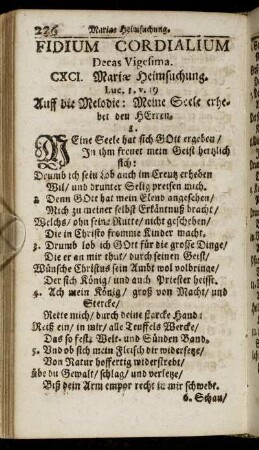 226 Mariae Heimsuchung.
FIDIUM CORDIALIUM
Decas Vigesima.
CXCI. Mariæ Heimsuchung.
Luc. 1. v. 19
Auff die Melodie: Meine Seele erhe-
bet den HErren.
1.
MEine Seele hat sich GOtt ergeben /
In ihm freuet mein Geist hertzlich
sich:
Drumb ich sein Lob auch im Creutz erheben
Wil / und drunter Selig preisen mich.
2. Denn GOtt hat mein Elend angesehen /
Mich zu meiner selbst Erkäntnuß bracht /
Welchs / ohn seine Rutte / nicht geschehen /
Die in Christo fromme Kinder macht.
3. Drumb lob ich GOtt für die grosse Dinge /
Die er an mir thut / durch seinen Geist /
Wünsche Christus sein Ambt wol volbringe /
Der sich König / und auch Priester heist.
4. Ach mein König / groß von Macht / und
Stercke /
Rette mich / durch deine starcke Hand:
Reiß ein / in mir / alle Teuffels Wercke /
Das so feste Welt- und Sünden Band.
5. Und ob sich mein Fleisch dir widersetze /
Von Natur hoffertig widerstrebt /
übe du Gewalt / schlag / und verletze /
Biß dein Arm empor recht in mir schwebt.
6. Schau /